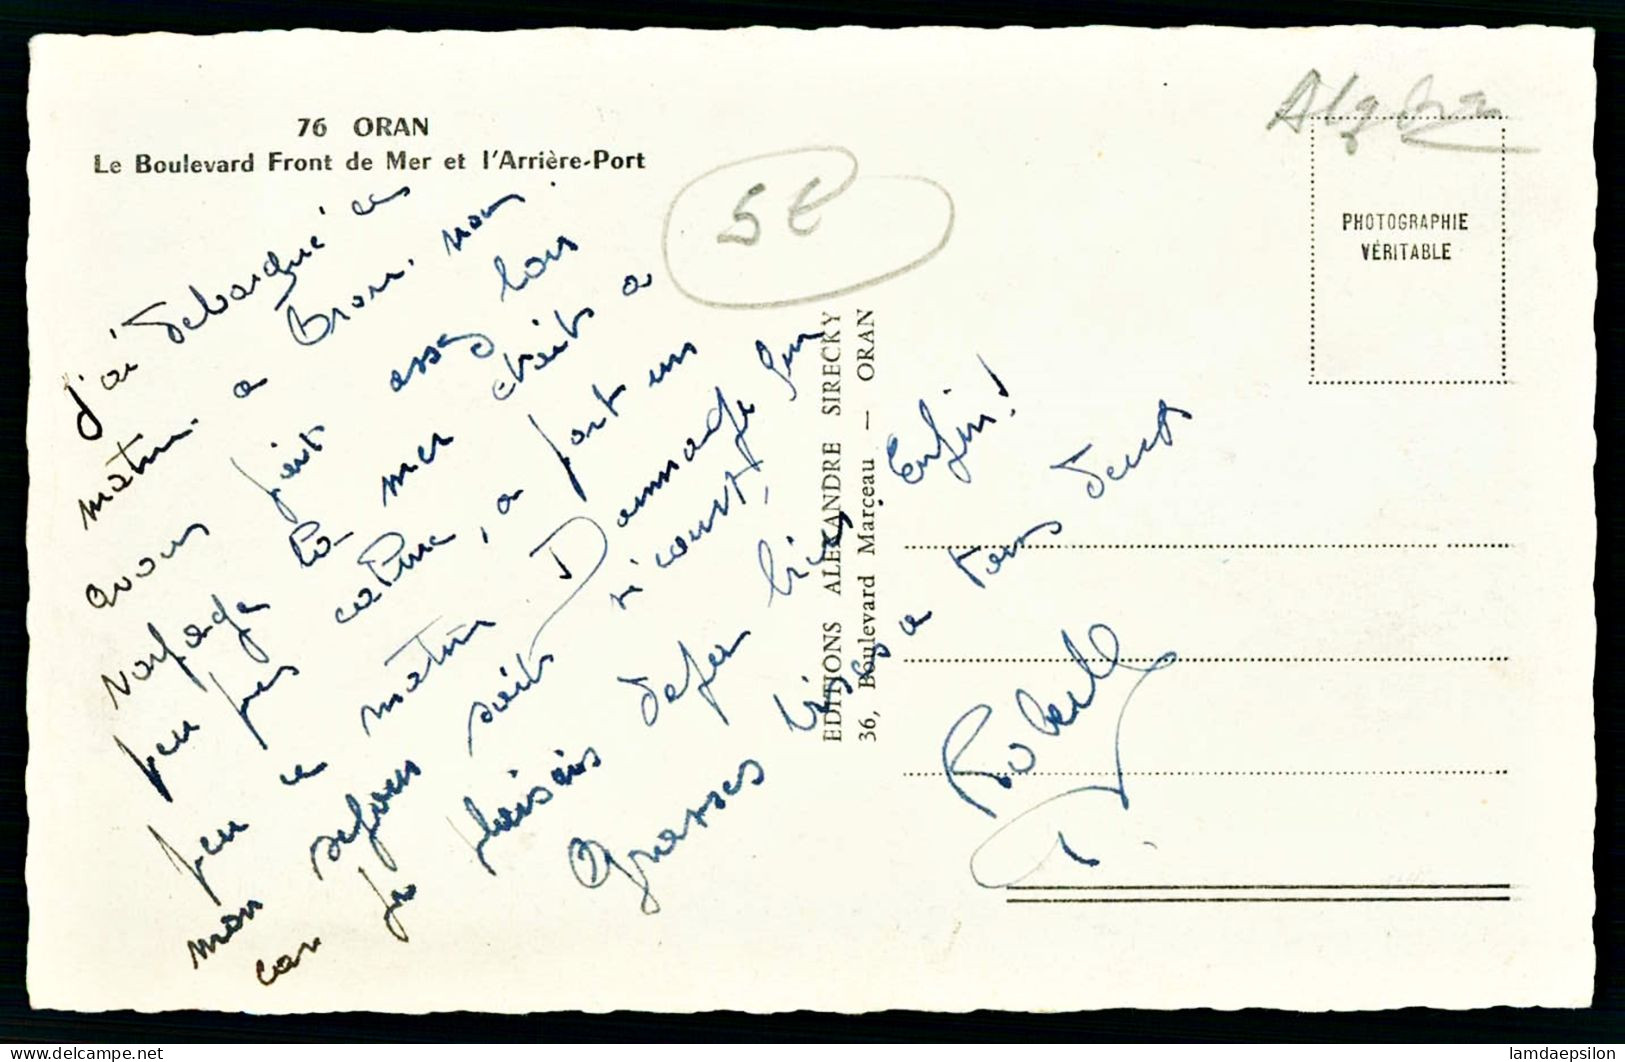 76 ORAN
Le Boulevard Front de Mer et l'Arrière-Port
5€
PHOTOGRAPHIE
VÉRITABLE
EDITIONS ALEXANDRE SIRECKY
36, Boulevard Marceau — ORAN
J'ai debarqué ce
matin a Oran. nous
avons fait assez bon
voyage la mer etait a
peu pres calme, a part un
peu ce matin Dommage que
mon sejour soit si court,
car je plaisais
bien. Enfin!
Grosses bises a tous deux
delcampe.net
lamdaepsilon